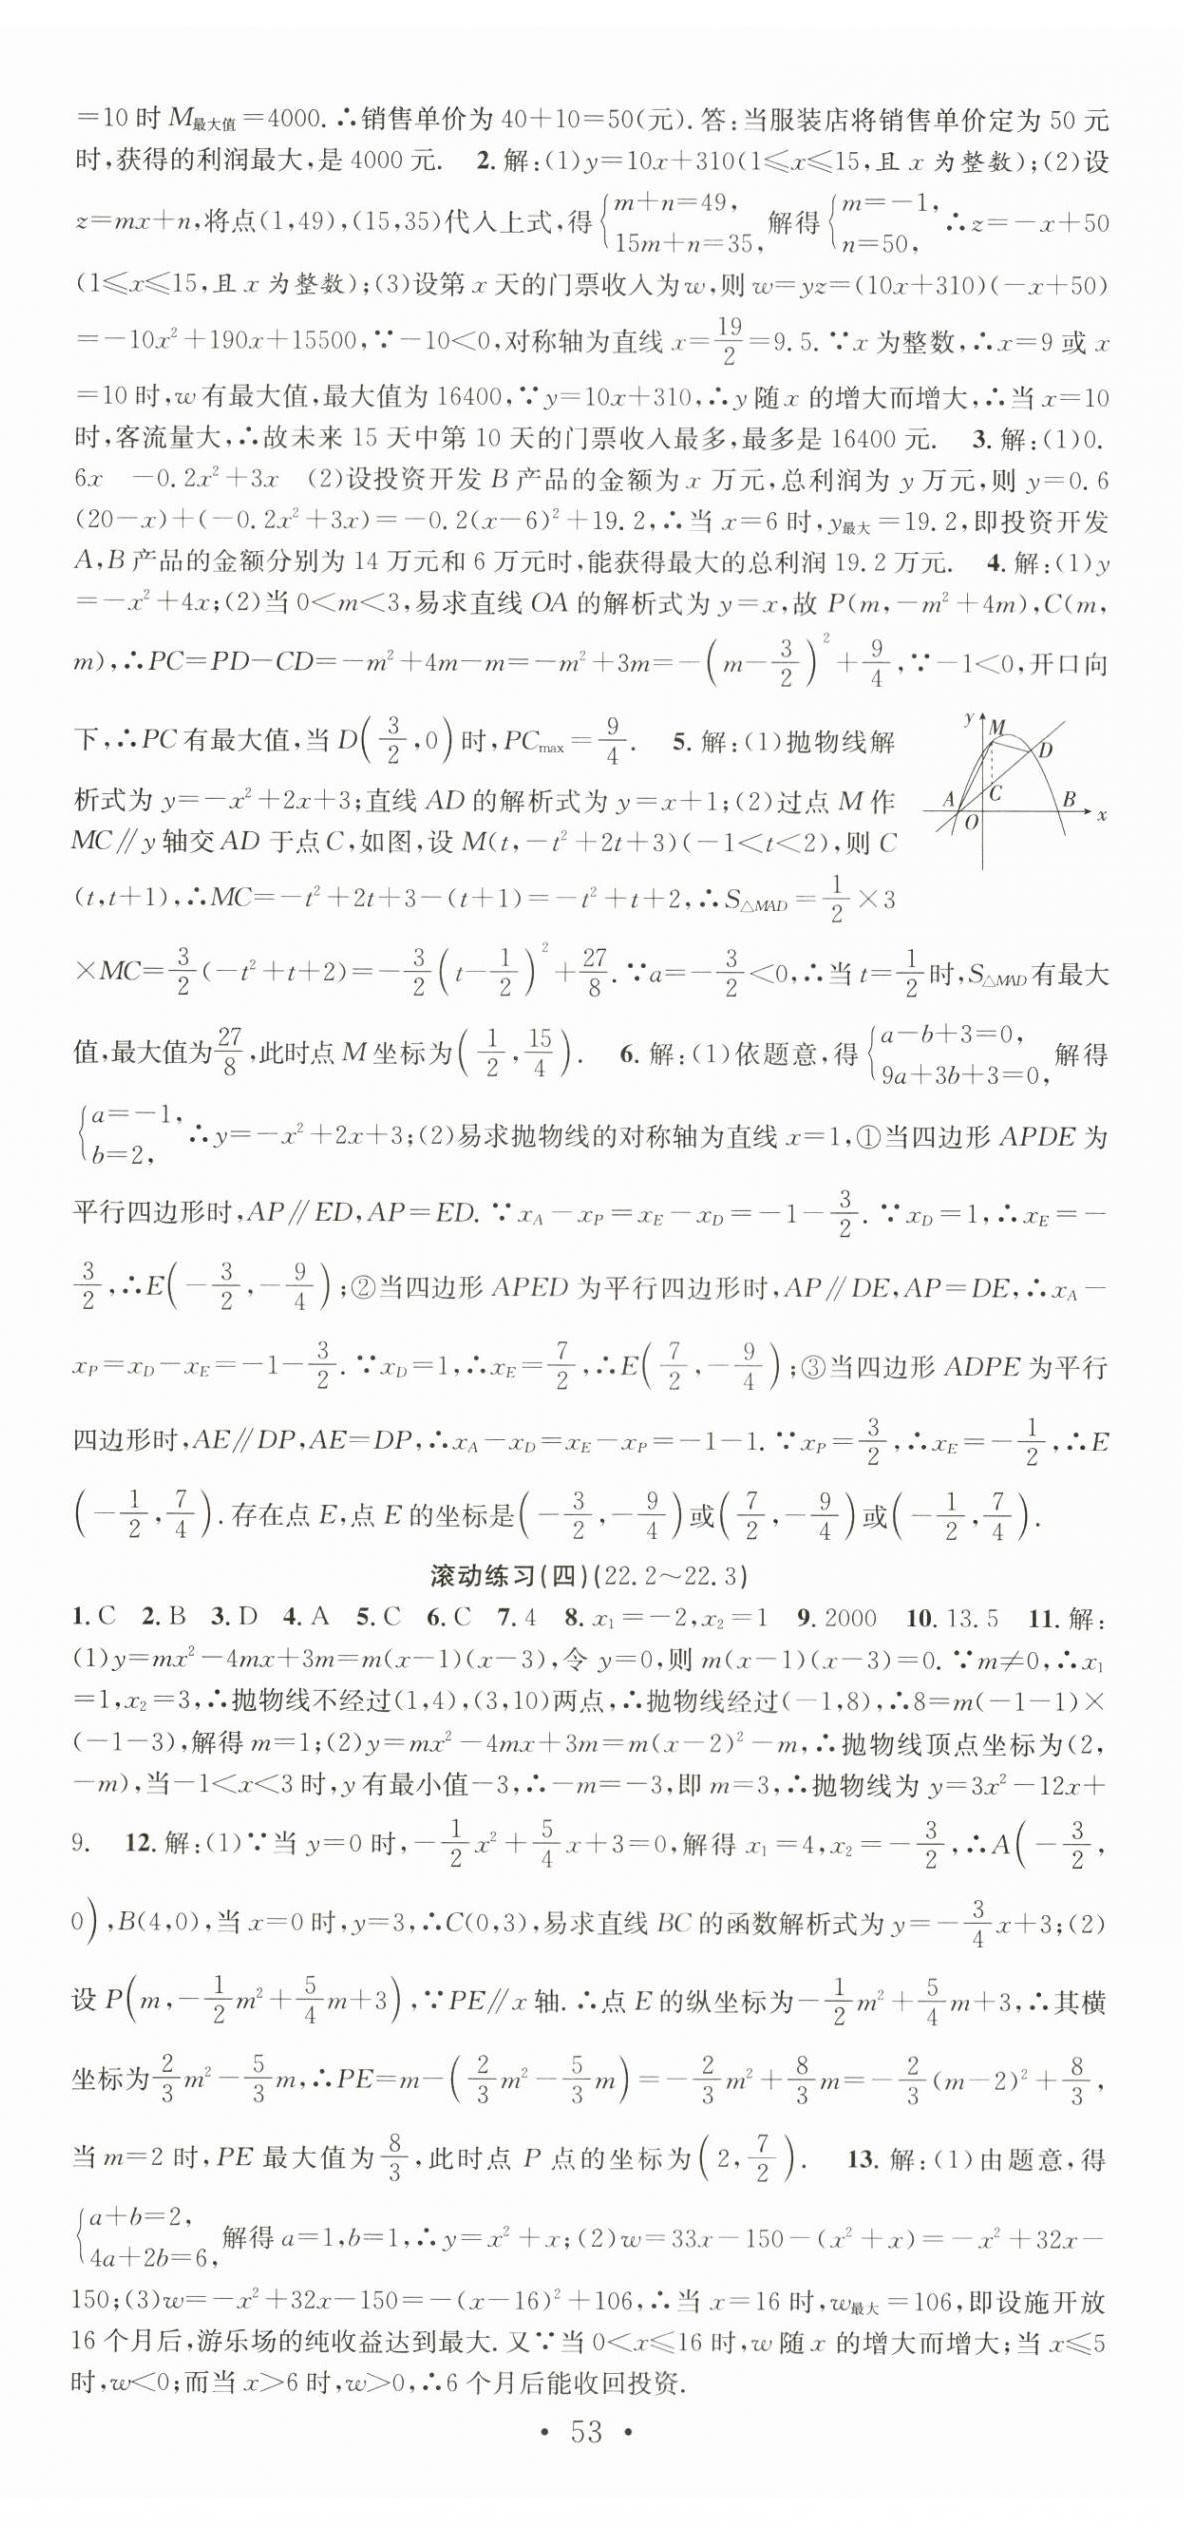 =10时M最大值=4000.∴销售单价为40+10=50(元).答:当服装店将销售单价定为50元
时,获得的利润最大,是4000元. 2.解:(1)y=10x+310(1⩽x⩽15,且x为整数);(2)设
z=mx+n,将点(1,49),(15,35)代入上式,得{m+n=49, 15m+n=35, 解得{m=-1, n=50, ∴z=-x+50
(1⩽x⩽15,且x为整数);(3)设第x天的门票收入为w,则w=yz=(10x+310)(-x+50)
=-10x²+190x+15500,∵-10<0,对称轴为直线x=19/2=9.5.∵x为整数,∴x=9或x
=10时,w有最大值,最大值为16400,∵y=10x+310,∴y随x的增大而增大,∴当x=10
时,客流量大,∴故未来15天中第10天的门票收入最多,最多是16400元. 3.解:(1)0.
6x -0.2x²+3x (2)设投资开发B产品的金额为x万元,总利润为y万元,则y=0.6
(20-x)+(-0.2x²+3x)=-0.2(x-6)²+19.2,∴当x=6时,y最大=19.2,即投资开发
A,B产品的金额分别为14万元和6万元时,能获得最大的总利润19.2万元. 4.解:(1)y
=-x²+4x;(2)当0<m<3,易求直线OA的解析式为y=x,故P(m,-m²+4m),C(m,
m),∴PC=PD-CD=-m²+4m-m=-m²+3m=-(m-3/2)²+9/4,∵-1<0,开口向
下,∴PC有最大值,当D(3/2,0)时,PCmax=9/4. 5.解:(1)抛物线解
析式为y=-x²+2x+3;直线AD的解析式为y=x+1;(2)过点M作
MC∥y轴交AD于点C,如图,设M(t,-t²+2t+3)(-1<t<2),则C
(t,t+1),∴MC=-t²+2t+3-(t+1)=-t²+t+2,∴S△MAD=1/2×3
y
M
D
A
C
B
O
x
×MC=3/2(-t²+t+2)=-3/2(t-1/2)²+27/8.∵a=-3/2<0,∴当t=1/2时,S△MAD有最大
值,最大值为27/8,此时点M坐标为(1/2,15/4). 6.解:(1)依题意,得{a-b+3=0, 9a+3b+3=0, 解得
{a=-1, b=2, ∴y=-x²+2x+3;(2)易求抛物线的对称轴为直线x=1,①当四边形APDE为
平行四边形时,AP∥ED,AP=ED.∵xA-xP=xE-xD=-1-3/2.∵xD=1,∴xE=-
3/2,∴E(-3/2,-9/4);②当四边形APED为平行四边形时,AP∥DE,AP=DE,∴xA-
xP=xD-xE=-1-3/2.∵xD=1,∴xE=7/2,∴E(7/2,-9/4);③当四边形ADPE为平行
四边形时,AE∥DP,AE=DP,∴xA-xD=xE-xP=-1-1.∵xP=3/2,∴xE=-1/2,∴E
(-1/2,7/4).存在点E,点E的坐标是(-3/2,-9/4)或(7/2,-9/4)或(-1/2,7/4).
滚动练习(四)(22.2~22.3)
1.C 2.B 3.D 4.A 5.C 6.C 7.4 8.x₁=-2,x₂=1 9.2000 10.13.5 11.解:
(1)y=mx²-4mx+3m=m(x-1)(x-3),令y=0,则m(x-1)(x-3)=0.∵m≠0,∴x₁
=1,x₂=3,∴抛物线不经过(1,4),(3,10)两点,∴抛物线经过(-1,8),∴8=m(-1-1)×
(-1-3),解得m=1;(2)y=mx²-4mx+3m=m(x-2)²-m,∴抛物线顶点坐标为(2,
-m),当-1<x<3时,y有最小值-3,∴-m=-3,即m=3,∴抛物线为y=3x²-12x+
9. 12.解:(1)∵当y=0时,-1/2x²+5/4x+3=0,解得x₁=4,x₂=-3/2,∴A(-3/2,
0),B(4,0),当x=0时,y=3,∴C(0,3),易求直线BC的函数解析式为y=-3/4x+3;(2)
设P(m,-1/2m²+5/4m+3),∵PE∥x轴.∴点E的纵坐标为-1/2m²+5/4m+3,∴其横
坐标为2/3m²-5/3m,∴PE=m-(2/3m²-5/3m)=-2/3m²+8/3m=-2/3(m-2)²+8/3,
当m=2时,PE最大值为8/3,此时点P点的坐标为(2,7/2). 13.解:(1)由题意,得
{a+b=2, 4a+2b=6, 解得a=1,b=1,∴y=x²+x;(2)w=33x-150-(x²+x)=-x²+32x-
150;(3)w=-x²+32x-150=-(x-16)²+106,∴当x=16时,w最大=106,即设施开放
16个月后,游乐场的纯收益达到最大.又∵当0<x⩽16时,w随x的增大而增大;当x⩽5
时,w<0;而当x>6时,w>0,∴6个月后能收回投资.
• 53 •